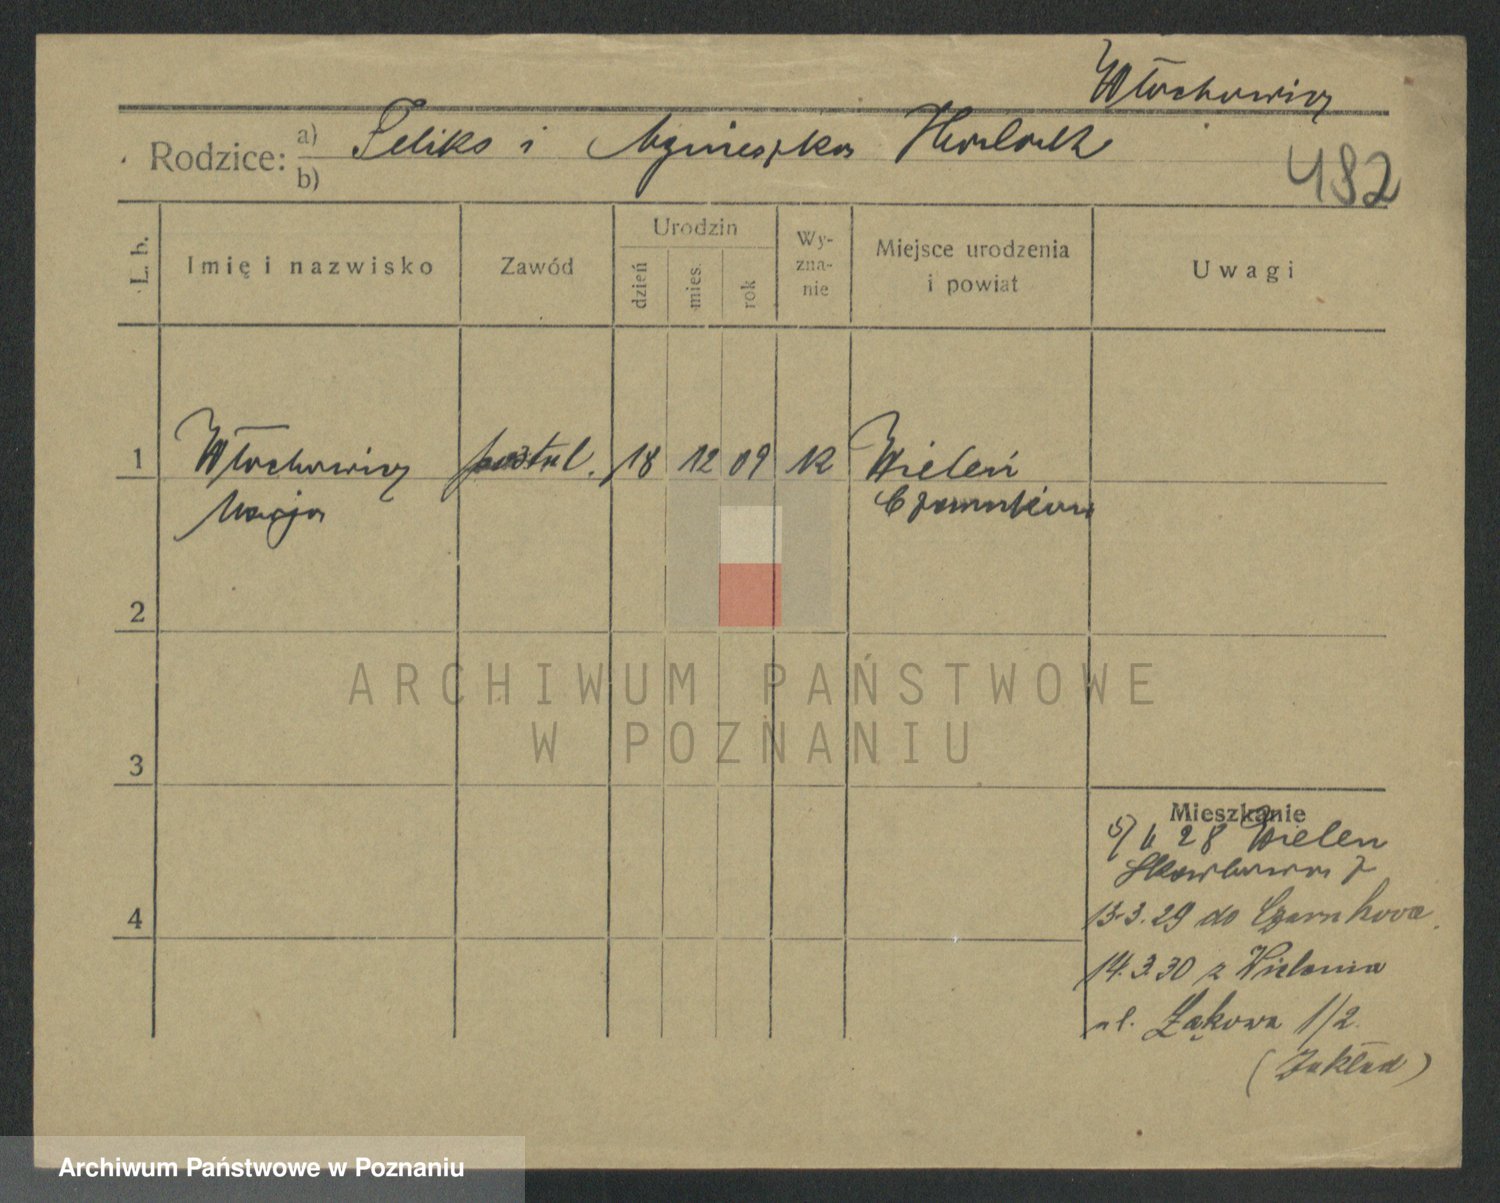 Włochowicz
Rodzice: a) Feliks i Agnieszka
b)
482
L. b.
Imię i nazwisko
Zawód
Urodzin
dzień
mies.
rok
Wy-
zna-
nie
Miejsce urodzenia
i powiat
Uwagi
1 Włochowicz 18 12 09 Wieleń
Marja Czarnków
2
3
4
Mieszkanie
28 Wieleń
13.3.29 do Czarnkowa
14.3.30 z Wielenia
ul. Łąkowa 1/2
(Zakład)
ARCHIWUM PAŃSTWOWE
W POZNANIU
Archiwum Państwowe w Poznaniu